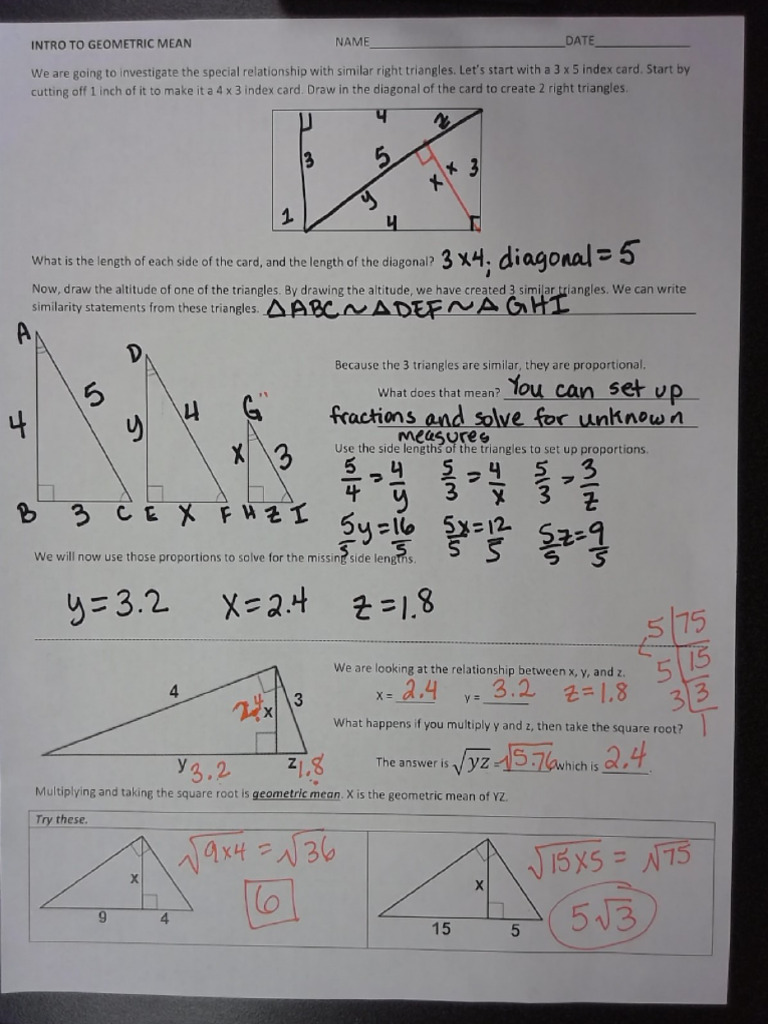 INTRO TO GEOMETRIC MEAN NAME____________________DATE__________
We are going to investigate the special relationship with similar right triangles. Let's start with a 3 x 5 index card. Start by
cutting off 1 inch of it to make it a 4 x 3 index card. Draw in the diagonal of the card to create 2 right triangles.
4 z
3 5 x x 3
1 y 4
What is the length of each side of the card, and the length of the diagonal? 3x4; diagonal = 5
Now, draw the altitude of one of the triangles. By drawing the altitude, we have created 3 similar triangles. We can write
similarity statements from these triangles. ΔABC~ΔDEF~ΔGHI
A D G"
4 5 y 4 x 3
B 3 C E x F H z I
Because the 3 triangles are similar, they are proportional.
What does that mean? You can set up
fractions and solve for unknown
measures
Use the side lengths of the triangles to set up proportions.
5/4 = 4/y 5/3 = 4/x 5/3 = 3/z
5y/5 = 16/5 5x/5 = 12/5 5z/5 = 9/5
We will now use those proportions to solve for the missing side lengths.
y = 3.2 x = 2.4 z = 1.8
5 75
5 15
3 3
1
4 2.4 x 3
y 3.2 z 1.8
We are looking at the relationship between x, y, and z.
x = 2.4 y = 3.2 z = 1.8
What happens if you multiply y and z, then take the square root?
The answer is √yz = √5.76 which is 2.4.
Multiplying and taking the square root is geometric mean. X is the geometric mean of YZ.
Try these.
x
9 4
√9x4 = √36
6
x
15 5
√15x5 = √75
5√3